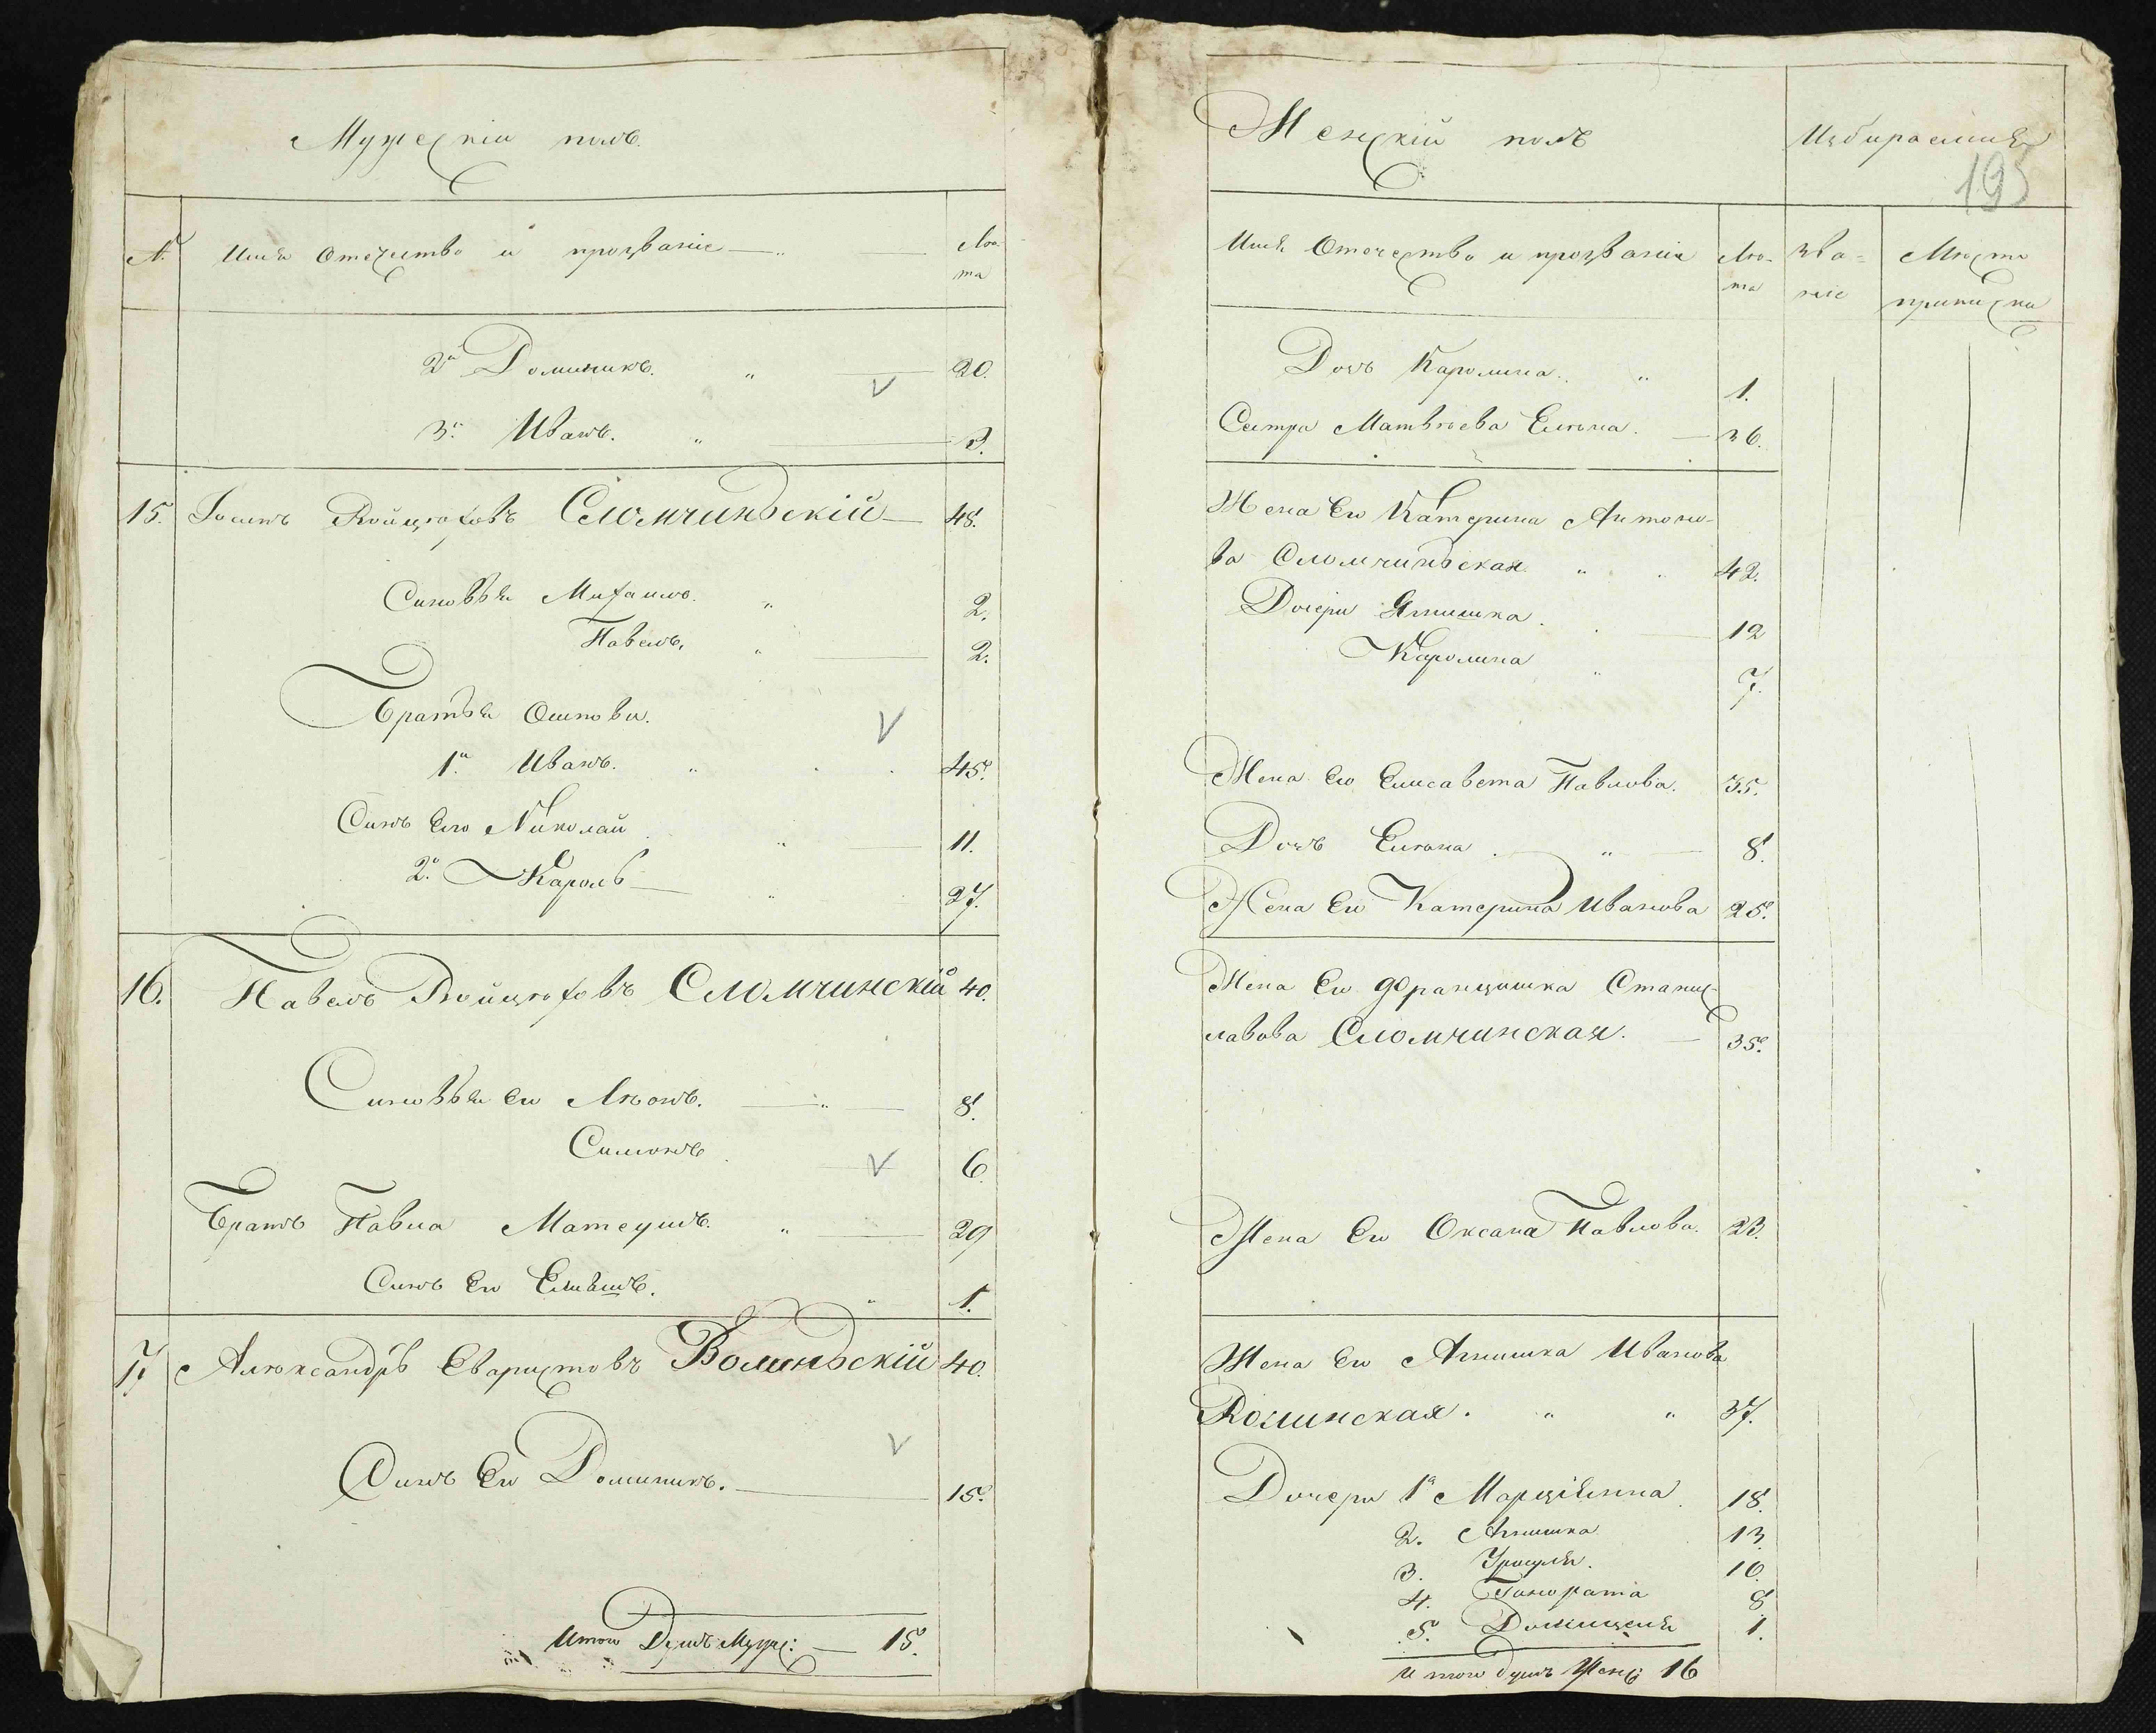 Мужескій полъ.
№ Имя Отечество и прозваніе Лѣ-
та
2й Доминикъ. 20.
3й Иванъ. 3.
15. Іосипъ Войцѣховъ Сломчиньскій 48.
Синовья Михаилъ. 2.
Павелъ. 2.
Братья Осиповы.
1й Иванъ. 45.
Синъ Его Николай 11.
2й Кароль 27.
16. Павелъ Войцѣховъ Сломчинскій 40.
Синовья Его Лѣонъ. 8.
Симонъ 6.
Братъ Павла Матеушъ. 29
Синъ Его 1.
17. Алѣксандръ Еваристовъ Волиньскій 40.
Синъ Его Доминикъ. 15.
Итого Душъ Муж: 15.
Женскій полъ
Избираемыя
195
Имя Отечество и прозваніе Лѣ-
та
Зва-
ніе
Мѣсто
приписки
Дочъ Каролина. 1.
Сестра Матвѣева Елѣна. 36.
Жена Его Катерина Антоно-
ва Сломчиньская 42.
Дочери Ягнишка. 12
Каролина 7.
Жена Его Елисавета Павлова. 35.
Дочъ Елѣна. 8.
Жена Его Катерина Иванова 25.
Жена Его Францишка Станис-
лавова Сломчинская. 35.
Жена Его Оксана Павлова. 23.
Жена Его Агнишка Иванова
Волинская. 37.
Дочери 1я Марціянна 18.
2. Агнишка 13
3. Урщуля. 10.
4. Гонората 8
5. Домицеля 1.
И того душъ Женс: 16